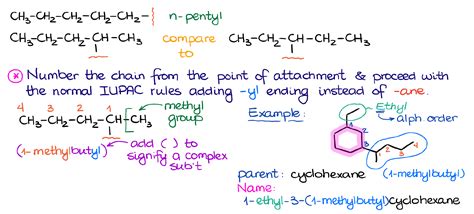 CH₃-CH₂-CH₂-CH₂-CH₂- n-pentyl
CH₃-CH₂-CH₂-CH-CH₃ compare to CH₃-CH₂-CH-CH₂-CH₃
* Number the chain from the point of attachment & proceed with
the normal IUPAC rules adding -yl ending instead of -ane.
4 3 2 1
CH₃-CH₂-CH₂-CH-CH₃ methyl group
(1-methylbutyl) add ( ) to signify a complex sub't
Example:
Ethyl
alph order
1 2 3
1 2 3 4
parent: cyclohexane (1-methylbutyl)
Name:
1-ethyl-3-(1-methylbutyl)cyclohexane